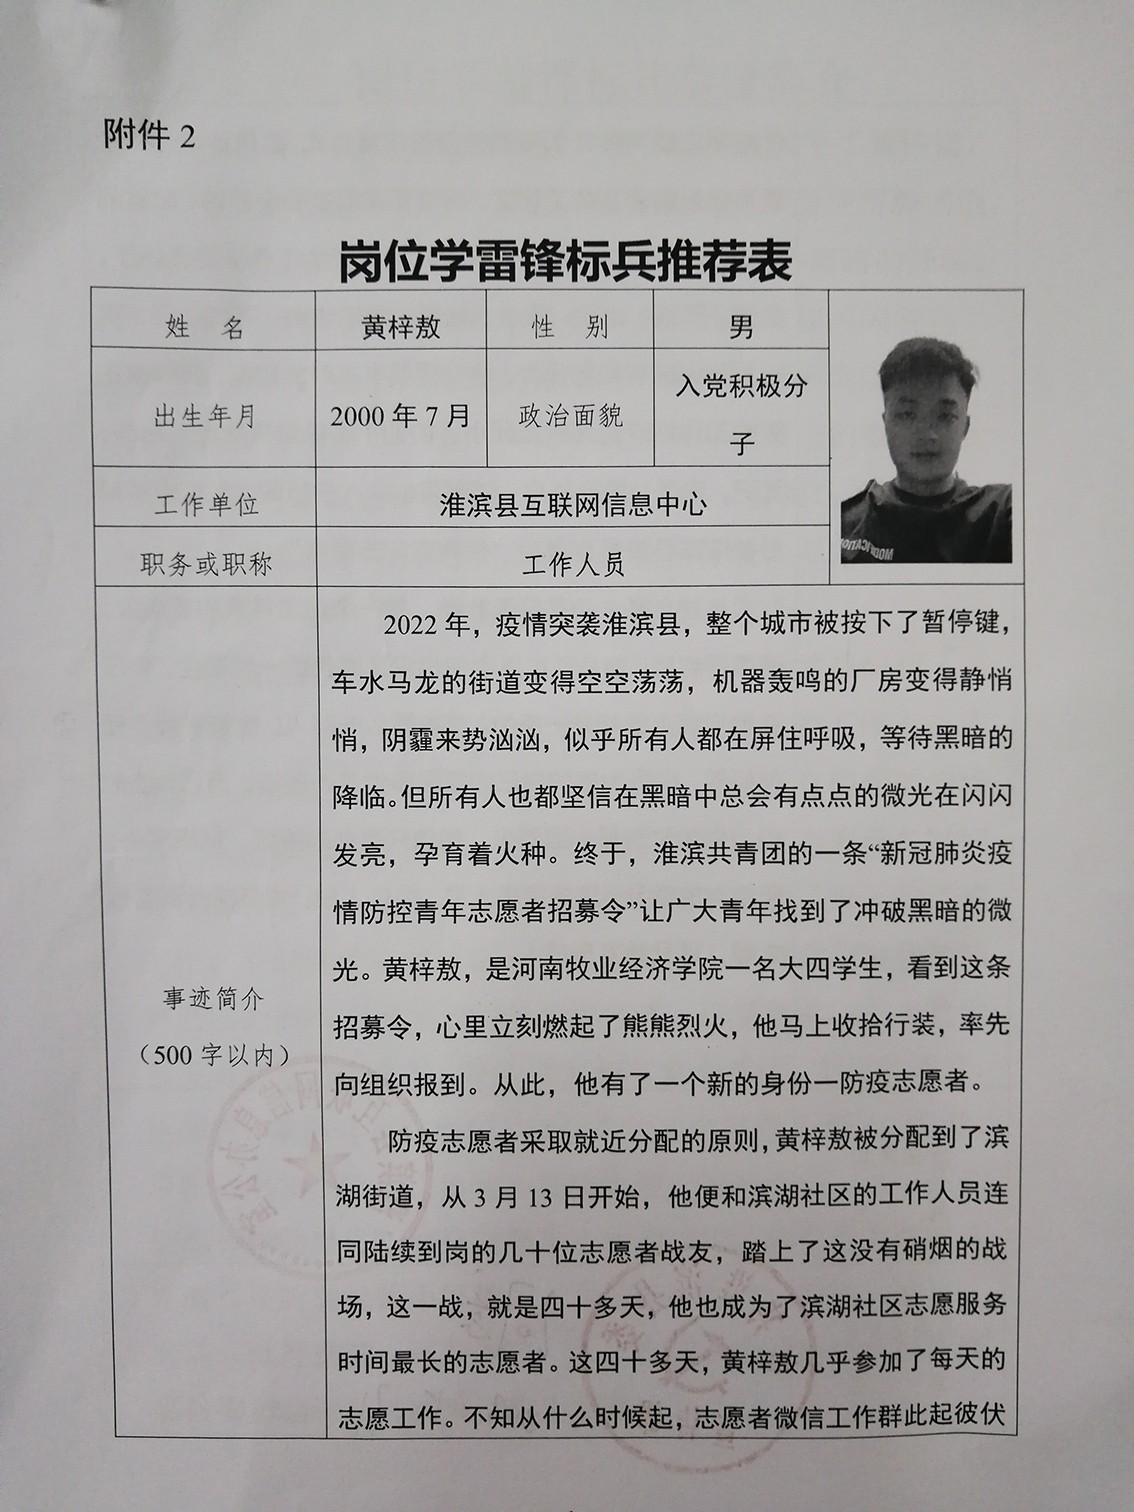 附件 2
岗位学雷锋标兵推荐表
姓 名 黄梓敖 性 别 男
出生年月 2000 年 7 月 政治面貌 入党积极分
子
工作单位 淮滨县互联网信息中心
职务或职称 工作人员
事迹简介
（500 字以内）
2022 年，疫情突袭淮滨县，整个城市被按下了暂停键，
车水马龙的街道变得空空荡荡，机器轰鸣的厂房变得静悄
悄，阴霾来势汹汹，似乎所有人都在屏住呼吸，等待黑暗的
降临。但所有人也都坚信在黑暗中总会有点点的微光在闪闪
发亮，孕育着火种。终于，淮滨共青团的一条“新冠肺炎疫
情防控青年志愿者招募令”让广大青年找到了冲破黑暗的微
光。黄梓敖，是河南牧业经济学院一名大四学生，看到这条
招募令，心里立刻燃起了熊熊烈火，他马上收拾行装，率先
向组织报到。从此，他有了一个新的身份一防疫志愿者。
防疫志愿者采取就近分配的原则，黄梓敖被分配到了滨
湖街道，从 3 月 13 日开始，他便和滨湖社区的工作人员连
同陆续到岗的几十位志愿者战友，踏上了这没有硝烟的战
场，这一战，就是四十多天，他也成为了滨湖社区志愿服务
时间最长的志愿者。这四十多天，黄梓敖几乎参加了每天的
志愿工作。不知从什么时候起，志愿者微信工作群此起彼伏